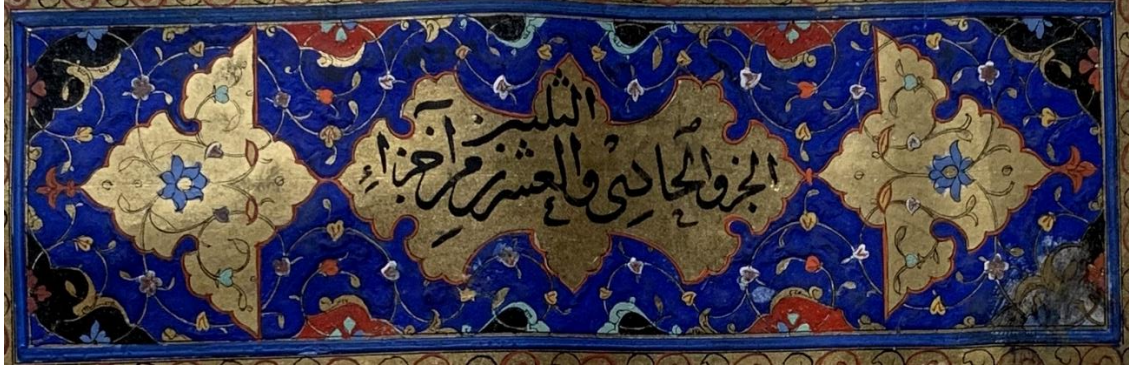 الجزو الحادى والعشرين من آجزاء
الثلثین